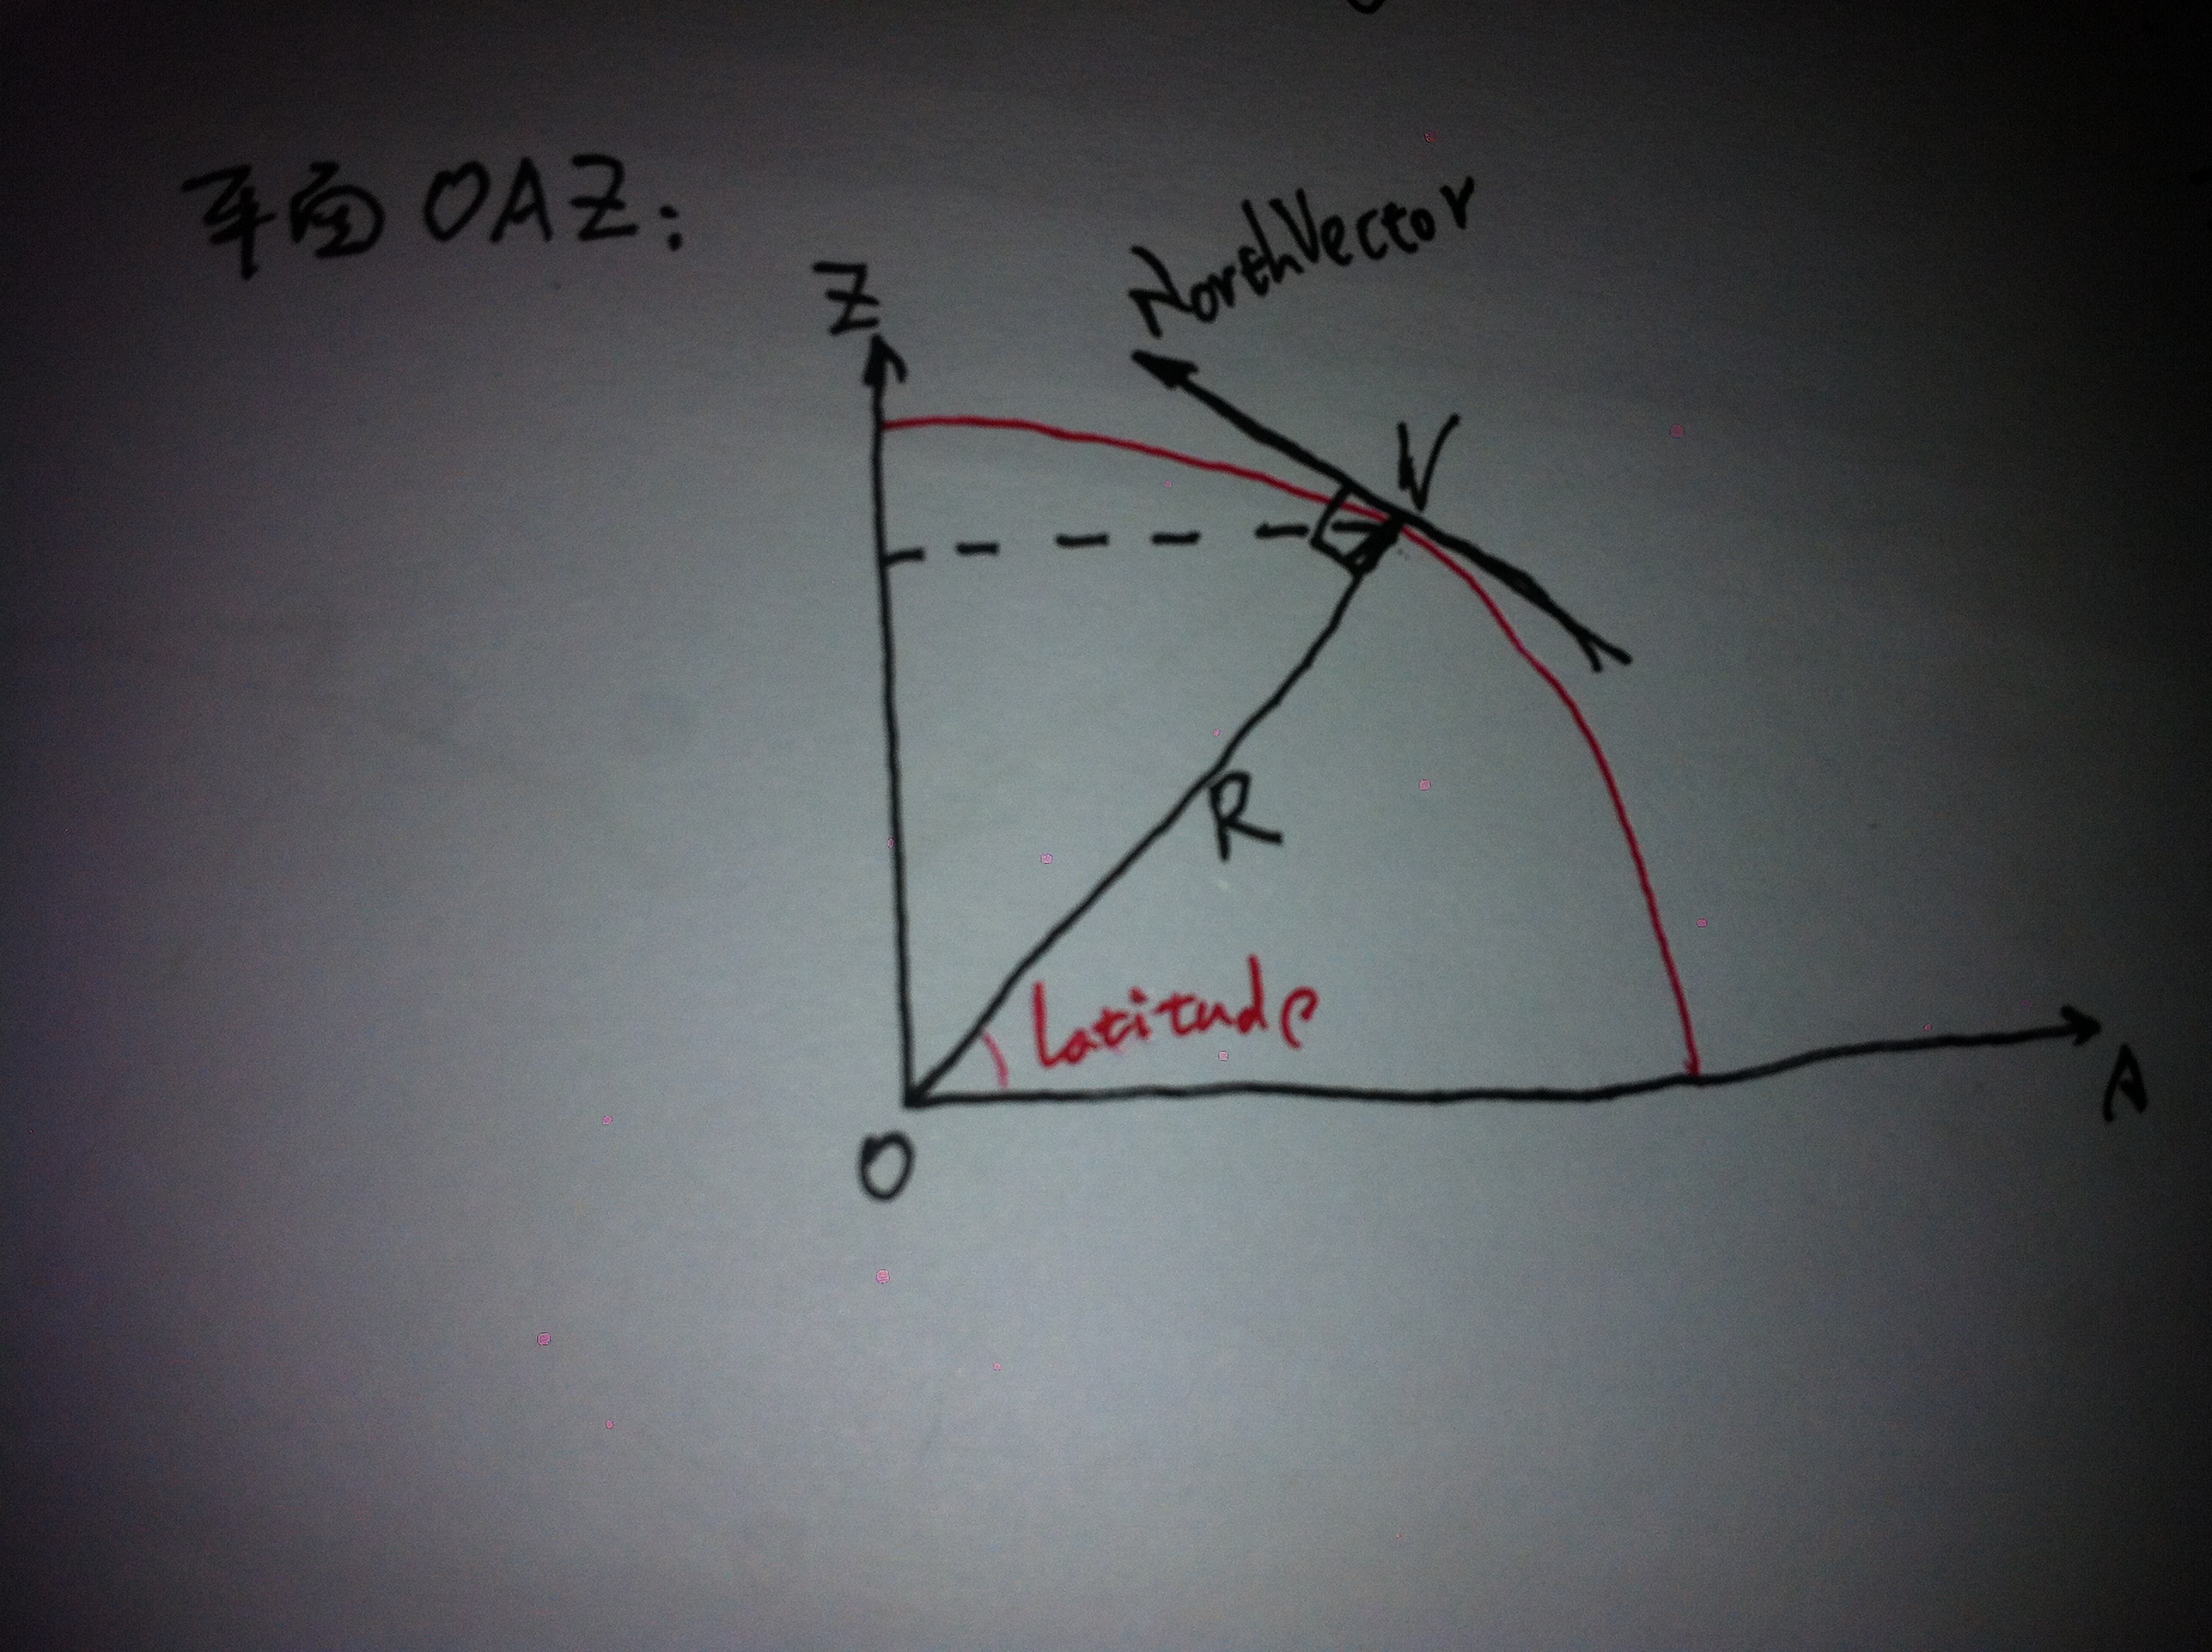 平面 OAZ:
NorthVector
Z
V
R
Latitude
A
O